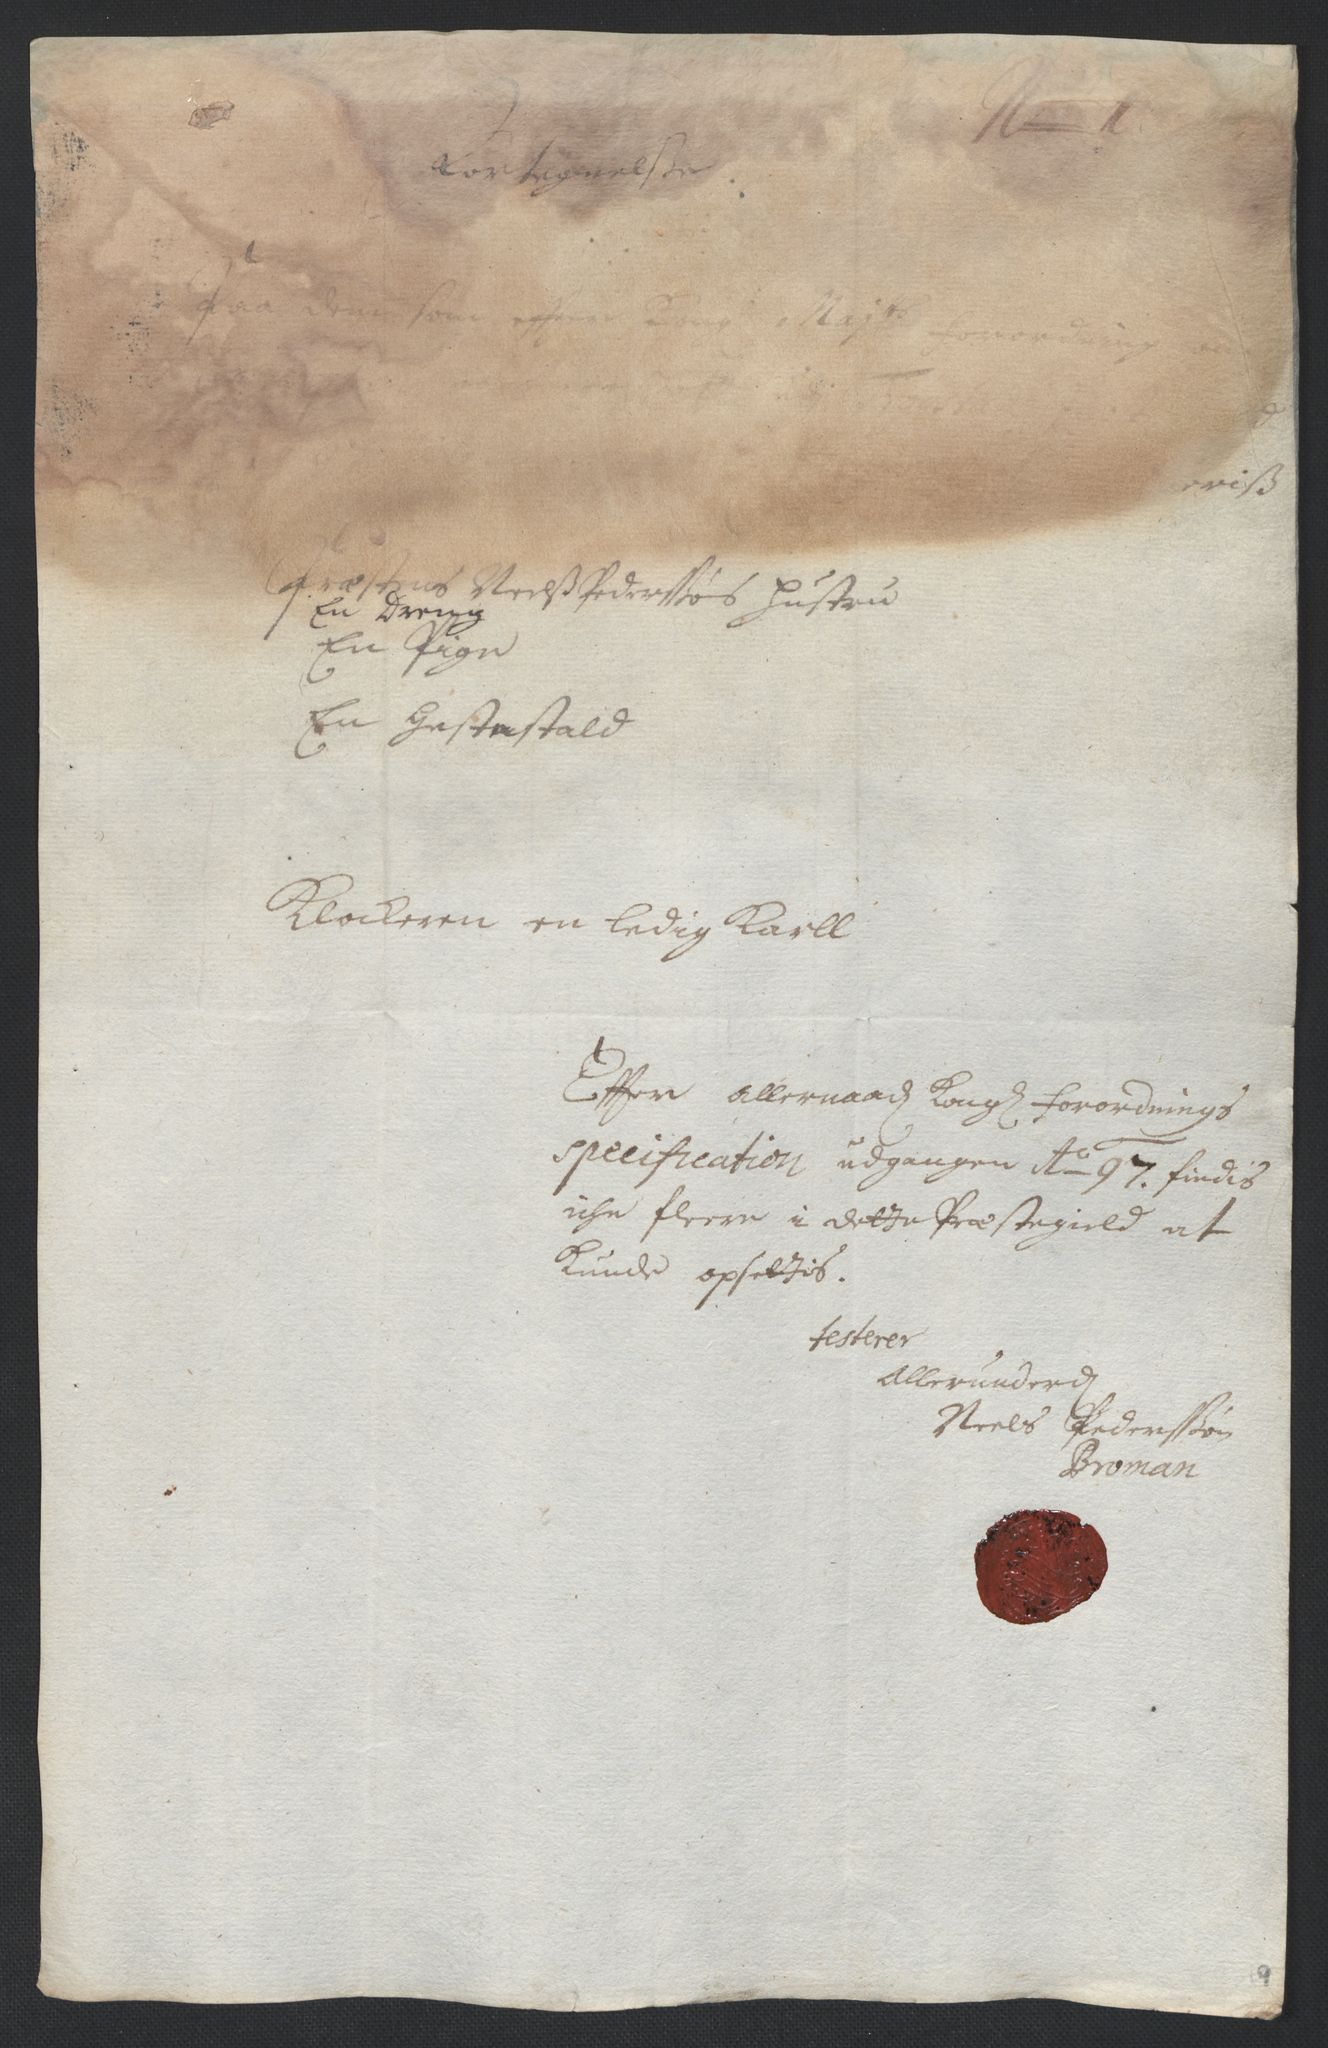 N 1
Fortegnelse
Paa dem som effter Kong Maj:ts forordning
eriß
Præstens Neelß Pedersøns Hustru
En Dreng
En Pige
En Hestestald
Klockeren en ledig Karll
Effter allernaad Kong forordnings
specification udgangen Ao 97. findis
iche fleere i dette Præstegield at
Kunde opsettis.
testerer
Allerunderd
Neels Pedersøn
Broman
9